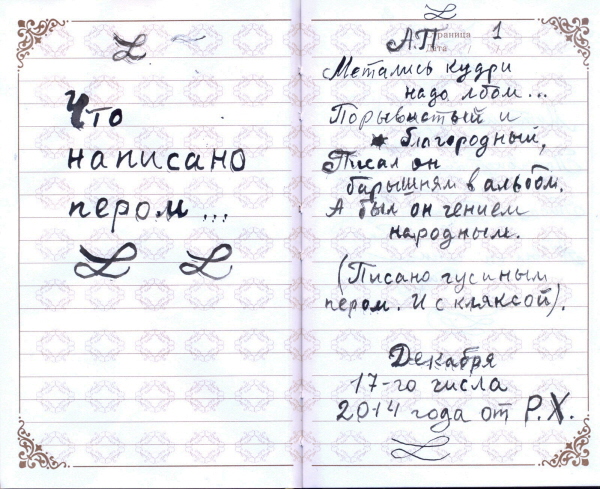 Что
написано
пером...
А.П
Страница 1
Дата
Метались кудри
надо лбом...
Порывистый и
благородный,
Писал он
барышням в альбом.
А был он гением
народным.
(Писано гусиным
пером. И с кляксой).
Декабря
17-го числа
2014 года от Р.Х.